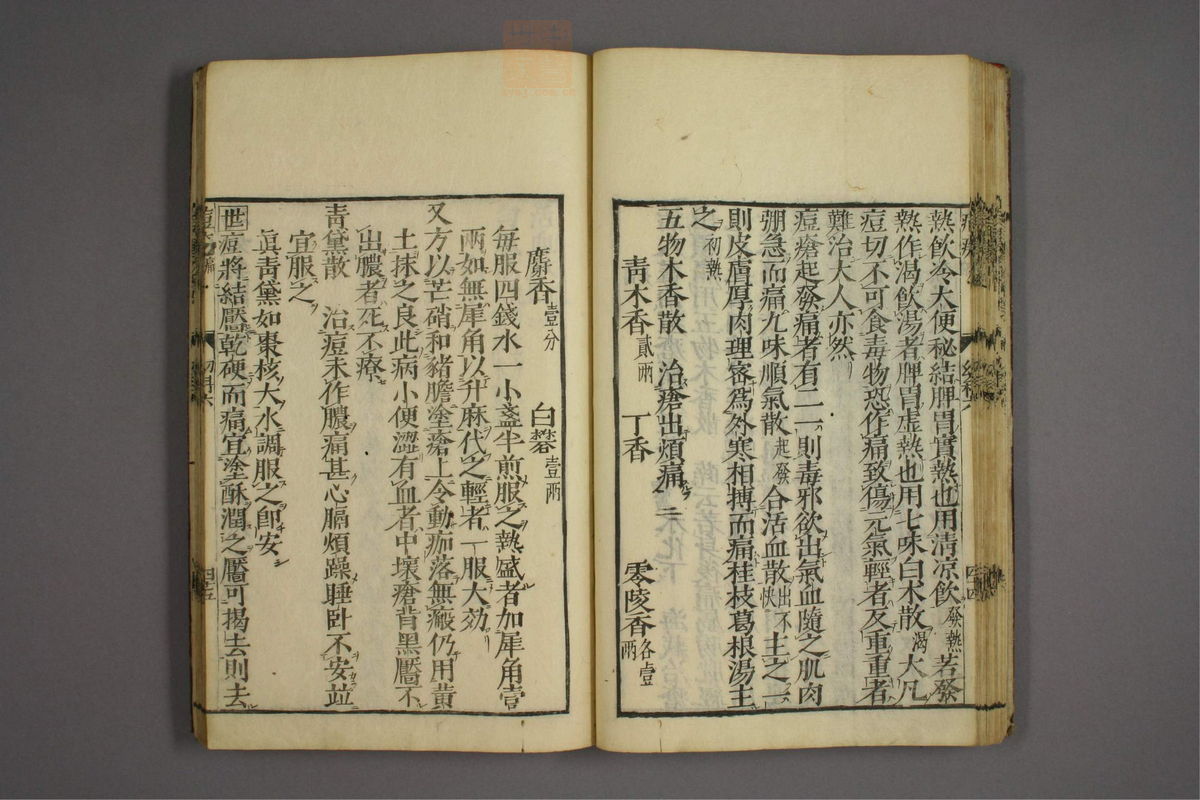 熱飲冷大便秘結脾胃實熱也用淸凉飲發熱若發
熱作渴飲湯者脾胃虚熱也用七味白术散渴大凡
痘切不可食毒物恐作痛致傷元氣輕者反重重者
難治大人亦然
痘瘡起發痛者有二一則毒邪欲出氣血隨之肌肉
弸急而痛九味順氣散起發合活血散出不快主之一
則皮膚厚肉理密爲外寒相搏而痛桂枝葛根湯主
之初熱
五物木香散 治瘡出煩痛
靑木香貳兩 丁香 零陵香各壹兩
麝香壹分 白礬壹兩
每服四錢水一小盞半煎服之熱盛者加犀角壹
兩如無犀角以升麻代之輕者一服大効
又方以芒硝和豬膽塗瘡上令動痂落無瘢仍用黃
土抹之良此病小便澀有血者中壞瘡背黑靨不
出膿者死不療
靑黛散 治痘未作膿痛甚心膈煩躁睡卧不安並
宜服之
眞靑黛如棗核大水調服之卽安
世痘將結靨乾硬而痛宜塗酥潤之靨可揭去則去